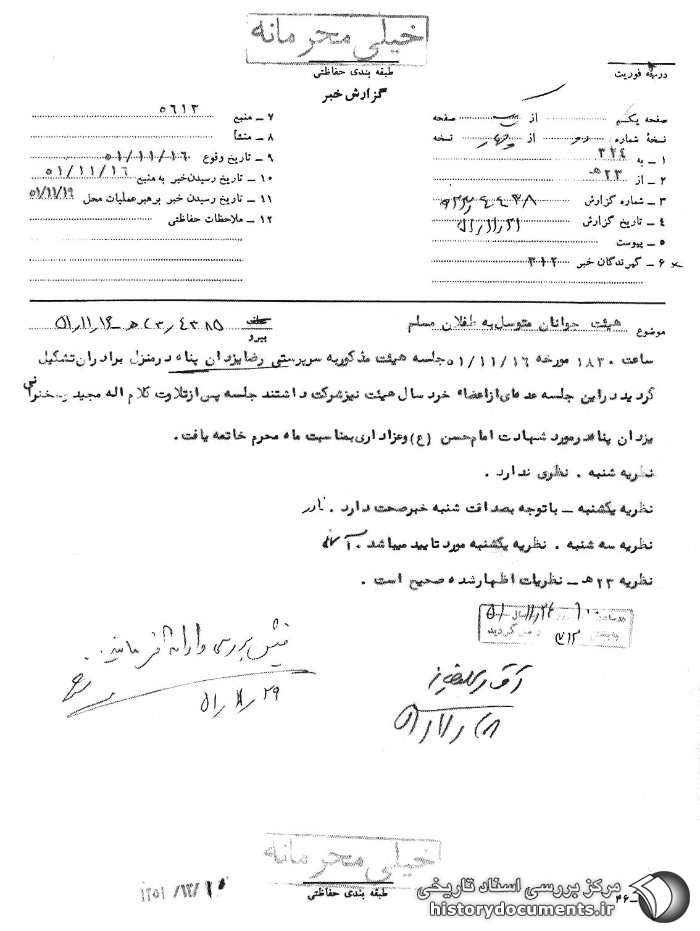 خیلی محرمانه
طبقه بندی حفاظتی
گزارش خبر
درجه فوریت
صفحه یکم از یک صفحه
نسخهٔ شماره دو از چهار نسخه
۱ ـ به ۳۲۴
۲ ـ از ۲۳ هـ
۳ ـ شماره گزارش
۴ ـ تاریخ گزارش
۵ ـ پیوست
۶ ـ گیرندگان خبر ۳۱۲
۷ ـ منبع ۵۶۱۳
۸ ـ منشأ
۹ ـ تاریخ وقوع ۵۱/۱۱/۱۶
۱۰ ـ تاریخ رسیدن خبر به منبع ۵۱/۱۱/۱۶
۱۱ ـ تاریخ رسیدن خبر برهبر عملیات محل ۵۱/۱۱/۱۹
۱۲ ـ ملاحظات حفاظتی
موضوع هیئت جوانان متوسل به طفلان مسلم
پیرو
ساعت ۱۸۳۰ مورخه ۵۱/۱۱/۱۶ جلسه هیئت مذکور به سرپرستی رضا یزدان پناه در منزل برادران تشکیل
گردید در این جلسه عده‌ای از اعضاء خرد سال هیئت نیز شرکت داشتند جلسه پس از تلاوت کلام اله مجید و سخنرانی
یزدان پناه در مورد شهادت امام حسن (ع) و عزاداری بمناسبت ماه محرم خاتمه یافت.
نظریه شنبه . نظری ندارد .
نظریه یکشنبه ـ با توجه بصداقت شنبه خبر صحت دارد . نادر
نظریه سه شنبه . نظریه یکشنبه مورد تایید میباشد .
نظریه ۲۳ هـ ـ نظریات اظهار شده صحیح است .
به بخش ۳۱۲
فیش بررسی و ارائه فرمایید.
خیلی محرمانه
طبقه بندی حفاظتی
مرکز بررسی اسناد تاریخی
historydocuments.ir